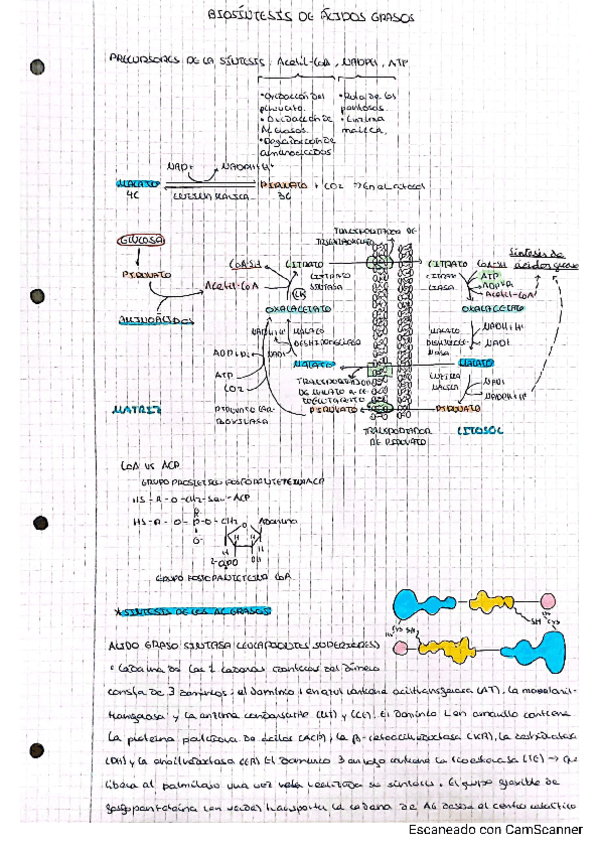 BIOSÍNTESIS DE ÁCIDOS GRASOS
PRECURSORES DE LA SÍNTESIS: Acetil-CoA, NADPH, ATP
• Oxidación del piruvato.
• Oxidación de Ac grasos.
• Degradación de aminoácidos
• Ruta de las pentosas.
• Enzima málica.
NAD+ NADH+H+
MALATO PIRUVATO + CO2 → En el citosol
4C ENZIMA MÁLICA 3C
TRANSPORTADOR DE TRICARBOXILATO
GLUCOSA
PIRUVATO
AMINOÁCIDOS
CoA-SH
Acetil-CoA
CITRATO
CITRATO SINTASA
CK
OXALACETATO
NADH+H+
NAD+
MALATO DESHIDROGENASA
MALATO
ADP+Pi
ATP
CO2
PIRUVATO CARBOXILASA
PIRUVATO
TRANSPORTADOR DE MALATO
MATRIZ
TRANSPORTADOR DE PIRUVATO
CITRATO
CoA-SH
Síntesis de ácidos grasos
CITRATO LIASA
ATP
ADP+Pi
Acetil-CoA
OXALACETATO
MALATO DESHIDROGENASA
NADH+H+
NAD+
MALATO
ENZIMA MÁLICA
NAD+
NADPH+H+
PIRUVATO
CITOSOL
CoA VS ACP
GRUPO PROSTÉTICO FOSFOPANTETEINA ACP
HS - R - O - CH2 - Ser - ACP
HS - R - O - P - O - CH2 Adenina
O-
O
H H
OH
GRUPO FOSFOPANTETEINA CoA
* SÍNTESIS DE LOS AC GRASOS
Cys SH
SH Cys
ÁCIDO GRASO SINTASA (EUCARIONTES SUPERIORES)
• Cada una de las 2 cadenas idénticas del dímero
consta de 3 dominios: el dominio 1 en azul contiene aciltransferasa (AT), la malonil-
transferasa y la enzima condensante (CE). El dominio 2 en amarillo contiene
la proteína portadora de acilos (ACP), la β-cetoacilreductasa (KR), la deshidratasa
(DH) y la enoilreductasa (ER). El dominio 3 en rojo contiene la tioesterasa (TE) → que
libera al palmitato una vez realizada su síntesis. El grupo flexible de
fosfopanteteína (en verde) transporta la cadena de AG desde el centro catalítico
Escaneado con CamScanner